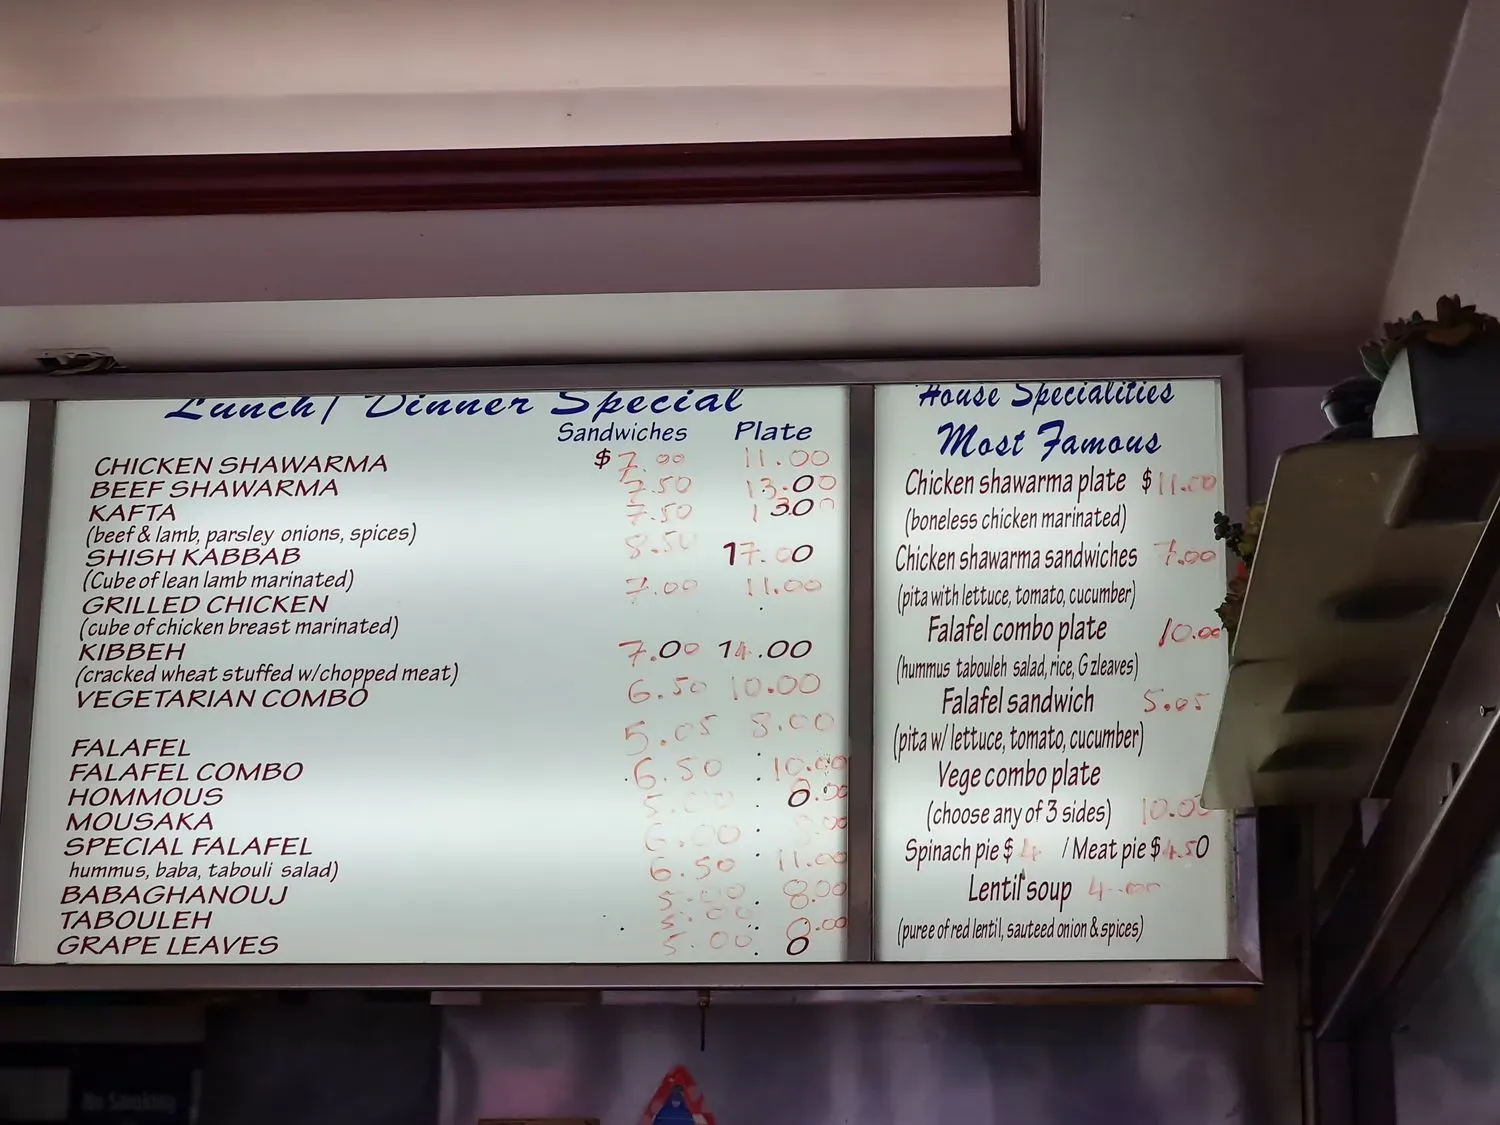 Lunch/ Dinner Special
Sandwiches Plate
CHICKEN SHAWARMA $7.00 11.00
BEEF SHAWARMA 7.50 13.00
KAFTA 7.50 13.0
(beef & lamb, parsley onions, spices)
SHISH KABBAB 8.50 17.00
(Cube of lean lamb marinated)
GRILLED CHICKEN 7.00 11.00
(cube of chicken breast marinated)
KIBBEH 7.00 14.00
(cracked wheat stuffed w/chopped meat)
VEGETARIAN COMBO 6.50 10.00
FALAFEL 5.05 8.00
FALAFEL COMBO 6.50 10.00
HOMMOUS 5.00
MOUSAKA 6.00
SPECIAL FALAFEL 6.50 11.00
hummus, baba, tabouli salad)
BABAGHANOUJ 5.00 8.00
TABOULEH 5.00
GRAPE LEAVES 5.00
House Specialities
Most Famous
Chicken shawarma plate $11.00
(boneless chicken marinated)
Chicken shawarma sandwiches 7.00
(pita with lettuce, tomato, cucumber)
Falafel combo plate 10.00
(hummus tabouleh salad, rice, G zleaves)
Falafel sandwich 5.05
(pita w/ lettuce, tomato, cucumber)
Vege combo plate
(choose any of 3 sides) 10.00
Spinach pie $ 4 / Meat pie $4.50
Lentil soup 4.00
(puree of red lentil, sauteed onion & spices)
No Smoking